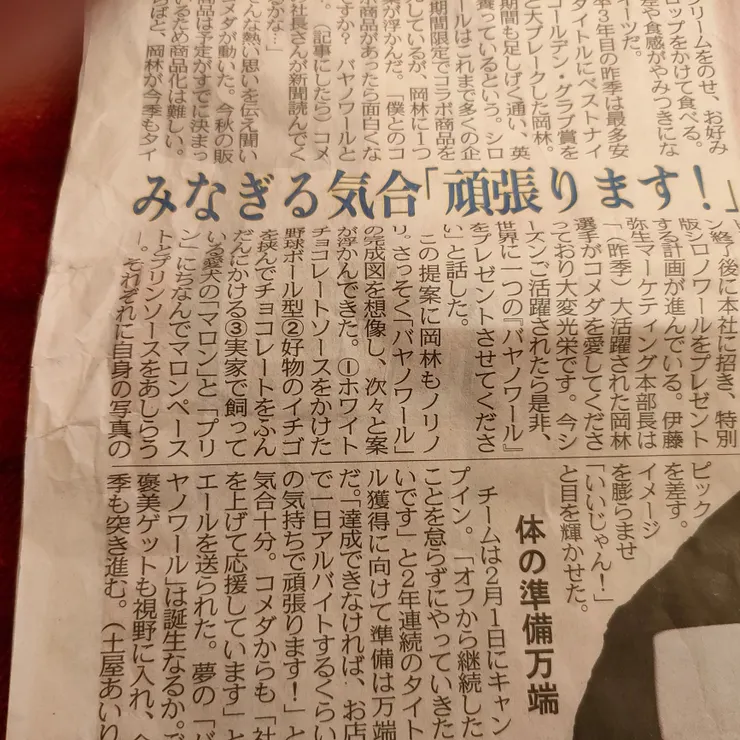 リームをのせ、お好み
ロップをかけて食べる。
差や食感がやみつきにな
イーツだ。
年3年目の昨季は最多安
タイトルにベストナイ
ゴールデン・グラブ賞を
と大ブレークした岡林。
期間も足しげく通い、英
養っているという。シロ
ールはこれまで多くの企
期間限定でコラボ商品を
しているが、岡林に1つ
案が浮かんだ。「僕とのコ
ボ商品があったら面白くな
ですか？ バヤノワールと
(記事にしたら)コメ
社長さんが新聞読んでく
るかな…」
んな熱い思いを伝え聞い
コメダが動いた。今秋の販
商品は予定がすでに決まっ
いるため商品化は難しい。
らばと、岡林が今季もタイ
みなぎる気合「頑張ります！」
ン終了後に本社に招き、特別
版シロノワールをプレゼント
する計画が進んでいる。伊藤
弥生マーケティング本部長は
「(昨季)大活躍された岡林
選手がコメダを愛してくださ
っており大変光栄です。今シ
ーズンご活躍されたら是非、
世界に一つの『バヤノワール』
をプレゼントさせてくださ
い」と話した。
この提案に岡林もノリノ
リ。さっそく「バヤノワール」
の完成図を想像し、次々と案
が浮かんできた。①ホワイト
チョコレートソースをかけた
野球ボール型②好物のイチゴ
を挟んでチョコレートをふん
だんにかける③実家で飼って
いる愛犬の「マロン」と「プリ
ン」にちなんでマロンペース
トとプリンソースをあしらう
―。それぞれに自身の写真の
ピック
を差す。
イメージ
を膨らませ
「いいじゃん！」
と目を輝かせた。
体の準備万端
チームは2月1日にキャン
プイン。「オフから継続した
ことを怠らずにやっていきた
いです」と2年連続のタイト
ル獲得に向けて準備は万端
だ。「達成できなければ、お店
で一日アルバイトするくらい
の気持ちで頑張ります！」と
気合十分。コメダからも「社
を上げて応援しています」と
エールを送られた。夢の「バ
ヤノワール」は誕生なるか。ご
褒美ゲットも視野に入れ、今
季も突き進む。(土屋あいり